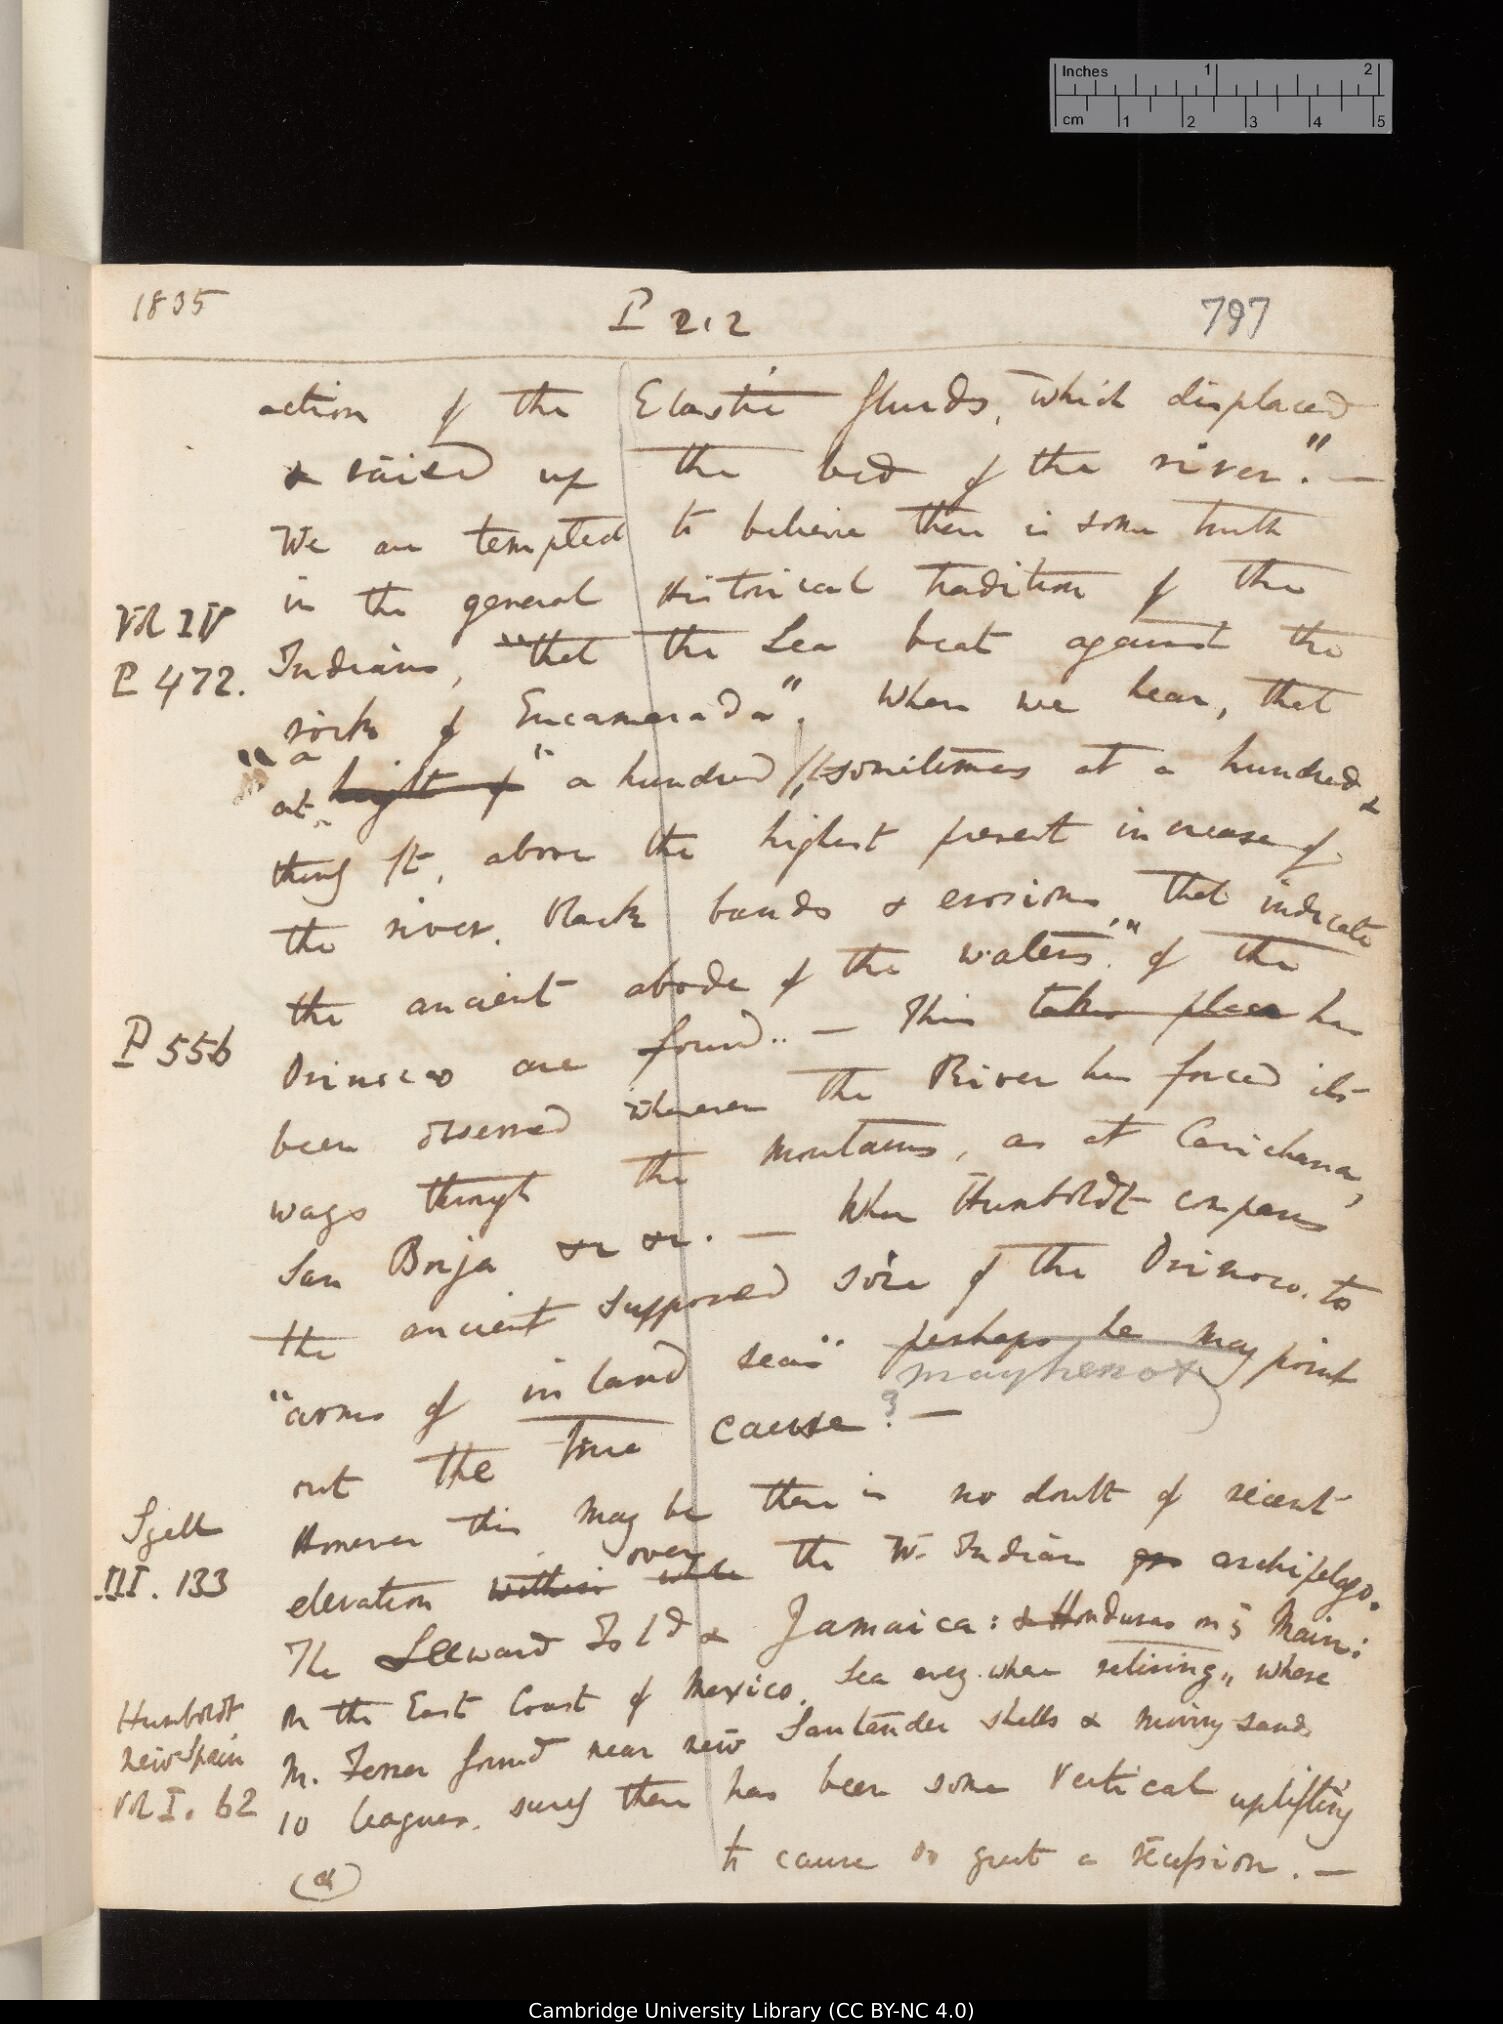 Inches 1 2
cm 1 2 3 4 5
1835 P 212 797
action of the Elastic fluids, which displaced
& raised up the bed of the river." —
We are tempted to believe there is some truth
in the general Historical tradition of the
Vol IV
P 472.
Indians, "that the Sea beat against the
rocks of Encamerada". When we hear, that
"at a height of" a hundred, "sometimes at a hundred &
thirty ft, above the highest present increase of
the river, black bands & erosions, that indicate
the ancient abode of the waters." of the
P 556
Orinoco are found.. — This takes place has
been observed wherever the River has forced its
ways through the mountains, as at Carichana,
San Borja &c &c. — When Humboldt compares
the ancient supposed size of the Orinoco, to
"arms of inland seas" perhaps he may point
may he not
out the true cause? —
However this may be there is no doubt of recent
Lyell
III. 133
elevation within while over the W. Indian archipelago.
The Leeward Isld & Jamaica: & Honduras on S Main:
Humboldt
New Spain
Vol I. 62
on the East Coast of Mexico, Sea every where retiring,, where
M. Ferrer found near new Santander shells & moving sands
10 leagues. surely there has been some vertical uplifting
to cause so great a recession. —
(a)
Cambridge University Library (CC BY-NC 4.0)